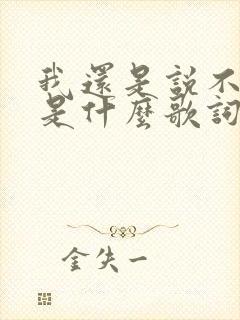 我還是説不
是什麼歌詞
金失一